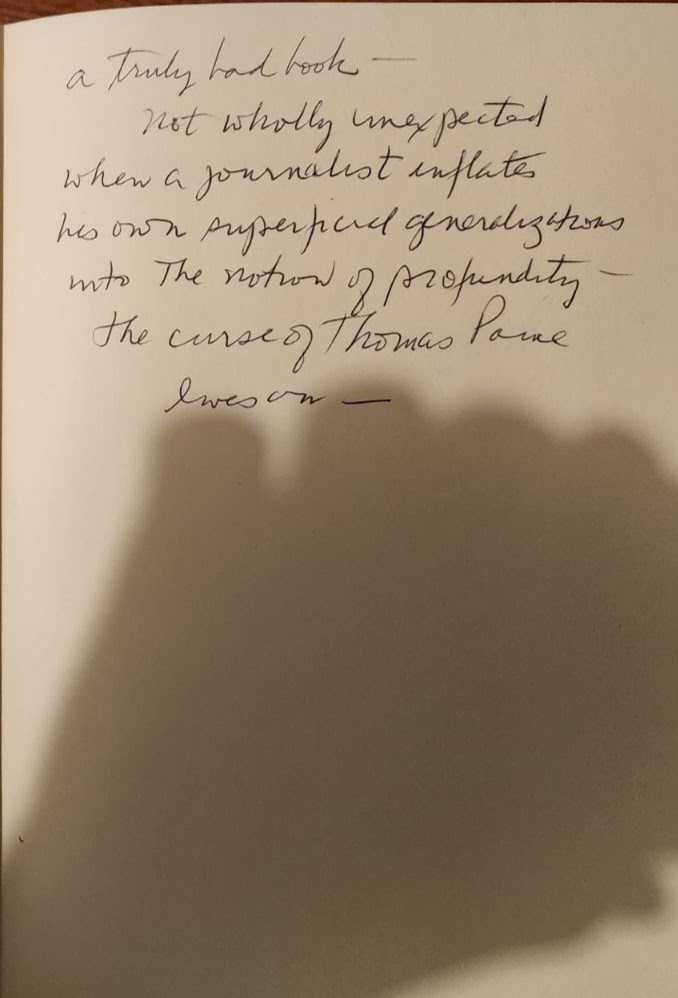 a truly bad book —
Not wholly unexpected
when a journalist inflates
his own superficial generalizations
into The notion of profundity —
the curse of Thomas Paine
lives on —